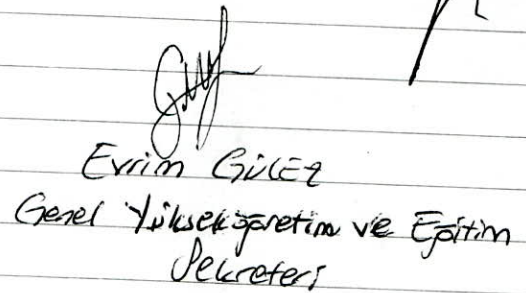 Evrim GÜLEZ
Genel Yükseköğretim ve Eğitim
Sekreteri